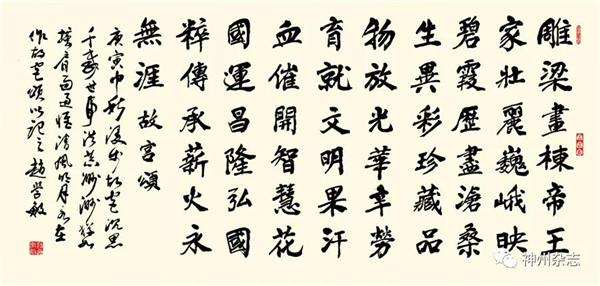 雕梁畫棟帝王
家壯麗巍峨映
碧霞歷盡滄桑
生異彩珍藏品
物放光華辛勞
育就文明果汗
血催開智慧花
國運昌隆弘國
粹傳承薪火永
無涯 故宮頌
庚寅
千年世事
清風明月
作故宮頌以記之趙學敏
神州杂志